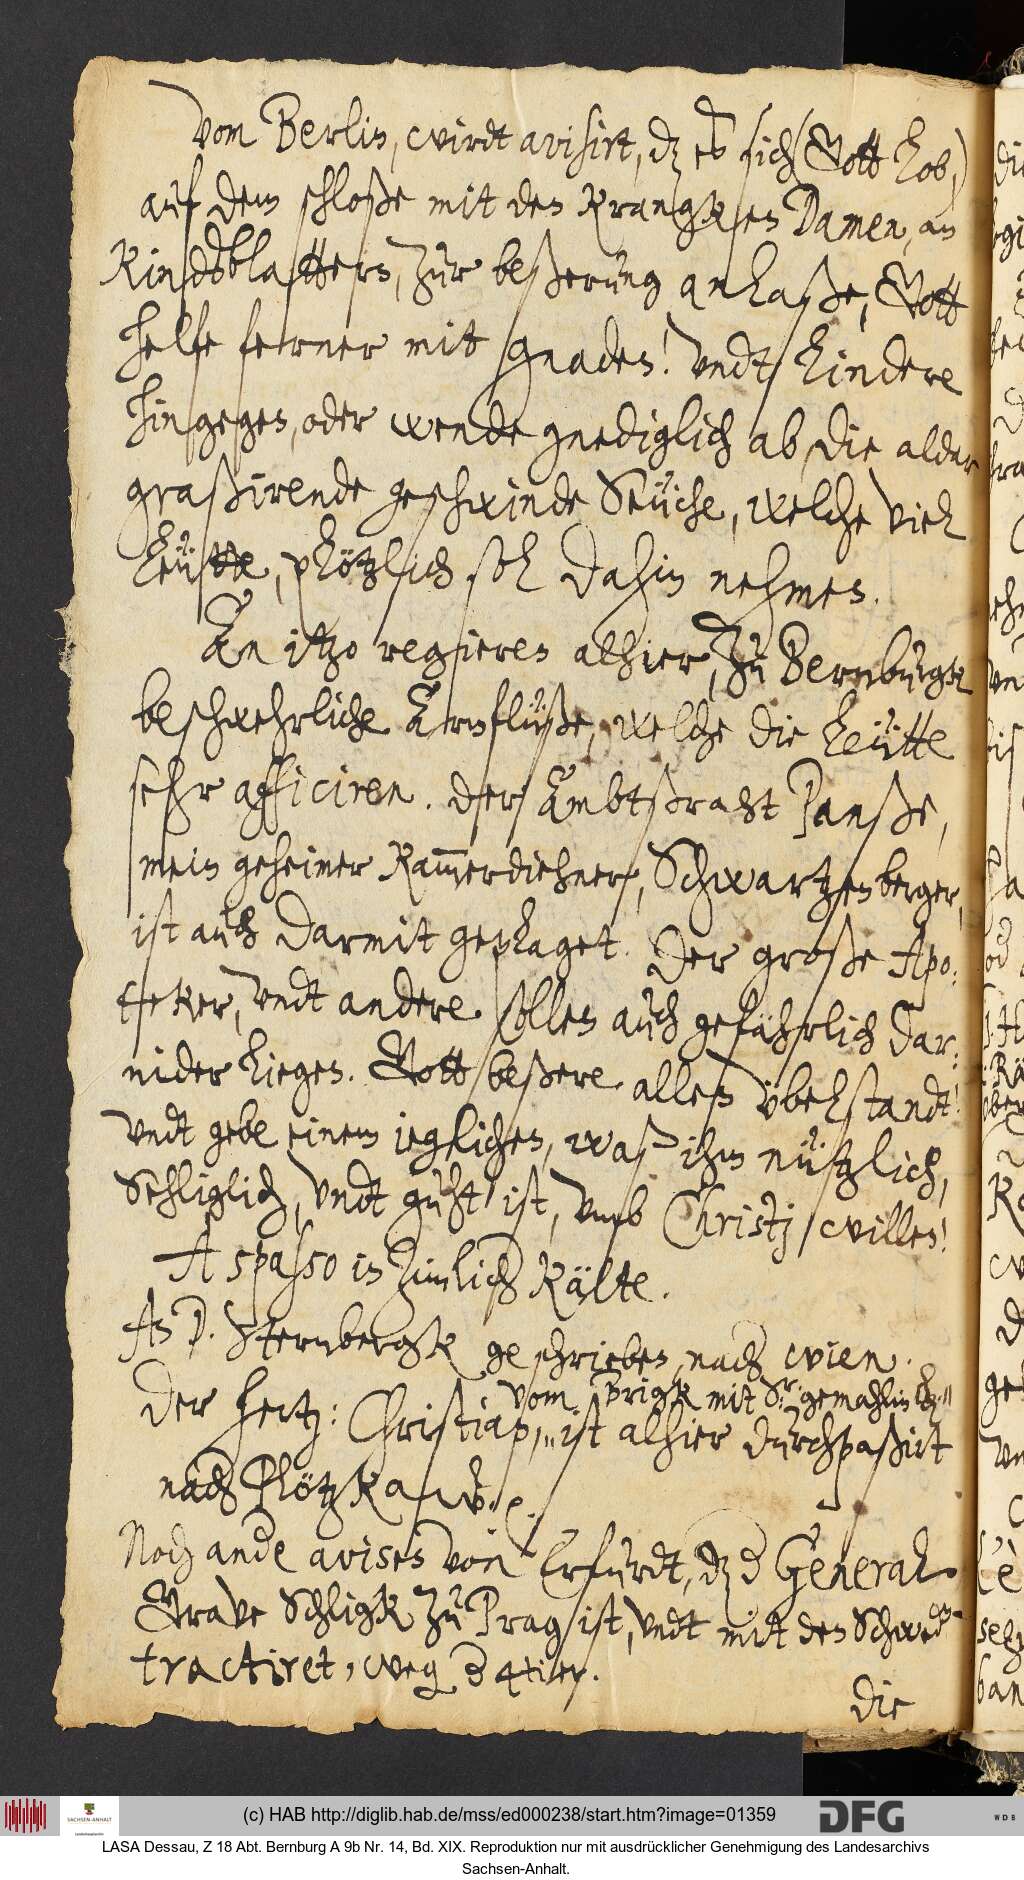 Vom Berlin, wirdt avisirt, dz es sich (Gott lob,)
auf dem schloße mit den Krangken Damen, an
Kindsblattern, zur beßerung anlaße, Gott
helfe ferner mit gnaden! Undt lindere
hingegen, oder wende gnediglich ab, die aldar
graßirende geschwinde Seüche, welche viel
leütte, plötzlich sol dahin nehmen.
An itzo regieren alhier, zu Bernburgk
beschwehrliche Armflüße, welche die leütte
sehr afficiren. Der Ambtßraht Panße,
mein geheimer Kammerdiehner, Schwartzenberger,
ist auch darmit geplaget. Der große Apo:
teker, undt andere sollen auch gefährlich dar:
nider liegen. Gott beßere allen übelstandt!
undt gebe einem ieglichen, waß ihm nützlich,
Sehliglich, undt guht ist, umb Christj willen!
A spasso in zimlich kälte.
An D. Sternbergk geschrieben nach wien.
vom Brigk mit Sr: gemahlin
Der Hertz: Christian, ist alhier durchpaßirt
nach Plötzkaw.
Noch ande avisen von Erfurdt, dz d General
Grave Schligk zu Prag ist, undt mit den Schwedn
tractiret, weg d 4tier.
die
(c) HAB http://diglib.hab.de/mss/ed000238/start.htm?image=01359
SACHSEN-ANHALT
DFG
WDB
LASA Dessau, Z 18 Abt. Bernburg A 9b Nr. 14, Bd. XIX. Reproduktion nur mit ausdrücklicher Genehmigung des Landesarchivs
Sachsen-Anhalt.